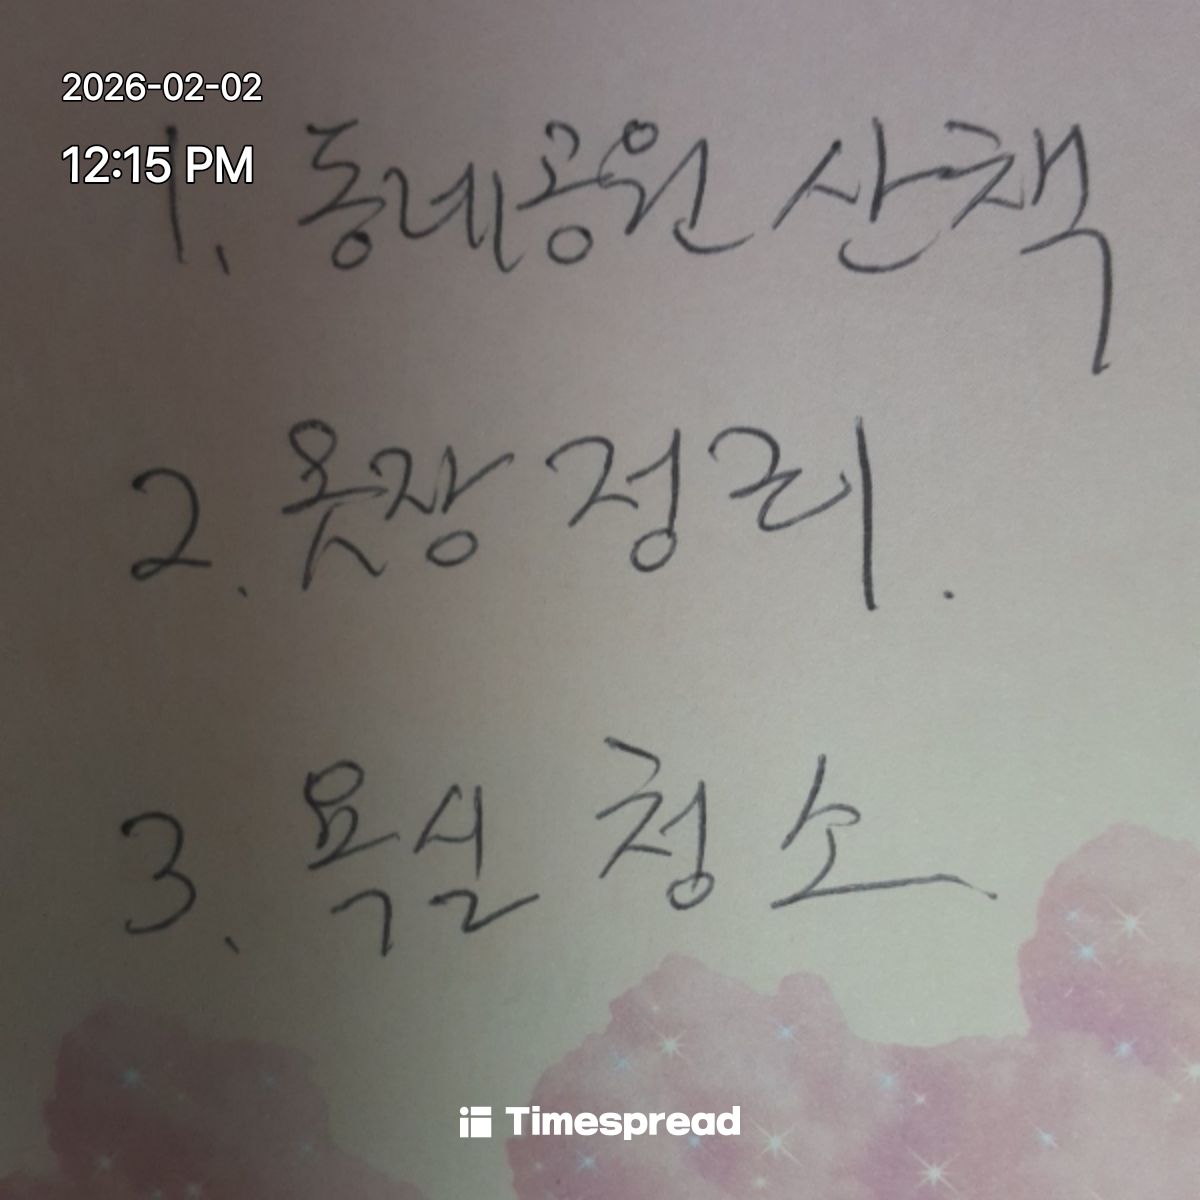 2026-02-02
12:15 PM
1. 동네공원 산책
2. 옷장 정리.
3. 욕실 청소
Timespread